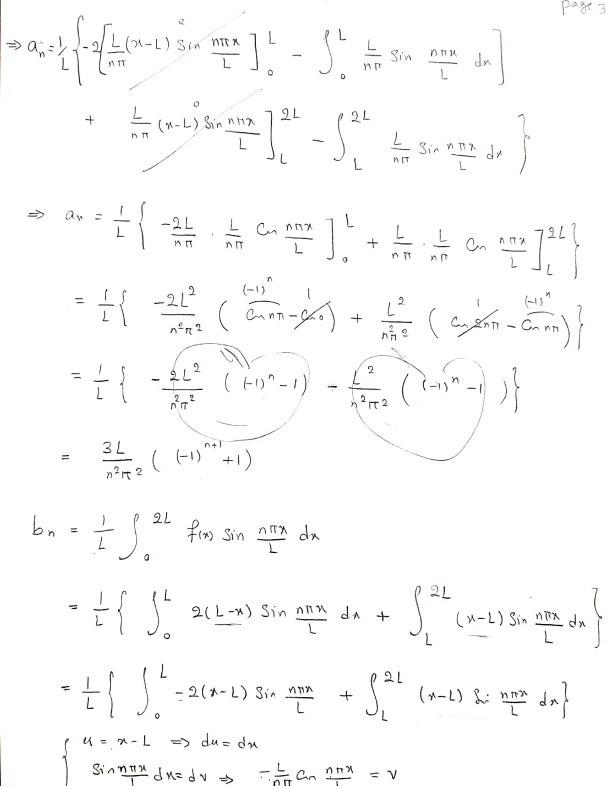 Page 3
⇒ aₙ = 1/L { -2[ L/nπ (x-L) Sin nπx/L ]₀^L - ∫₀^L L/nπ Sin nπx/L dx ]
+ L/nπ (x-L) Sin nπx/L ]_L^2L - ∫_L^2L L/nπ Sin nπx/L dx }
⇒ aₙ = 1/L { -2L/nπ · L/nπ Cos nπx/L ]₀^L + L/nπ · L/nπ Cos nπx/L ]_L^2L }
= 1/L { -2L²/n²π² ( Cos nπ - Cos 0 ) + L²/n²π² ( Cos 2nπ - Cos nπ ) }
(-1)ⁿ 1 1 (-1)ⁿ
= 1/L { - 2L²/n²π² ( (-1)ⁿ - 1 ) - L²/n²π² ( (-1)ⁿ - 1 ) }
= 3L/n²π² ( (-1)ⁿ⁺¹ + 1 )
bₙ = 1/L ∫₀^2L f(x) Sin nπx/L dx
= 1/L { ∫₀^L 2(L-x) Sin nπx/L dx + ∫_L^2L (x-L) Sin nπx/L dx }
= 1/L { ∫₀^L -2(x-L) Sin nπx/L + ∫_L^2L (x-L) Sin nπx/L dx }
{ u = x-L ⇒ du = dx
Sin nπx/L dx = dv ⇒ -L/nπ Cos nπx/L = v